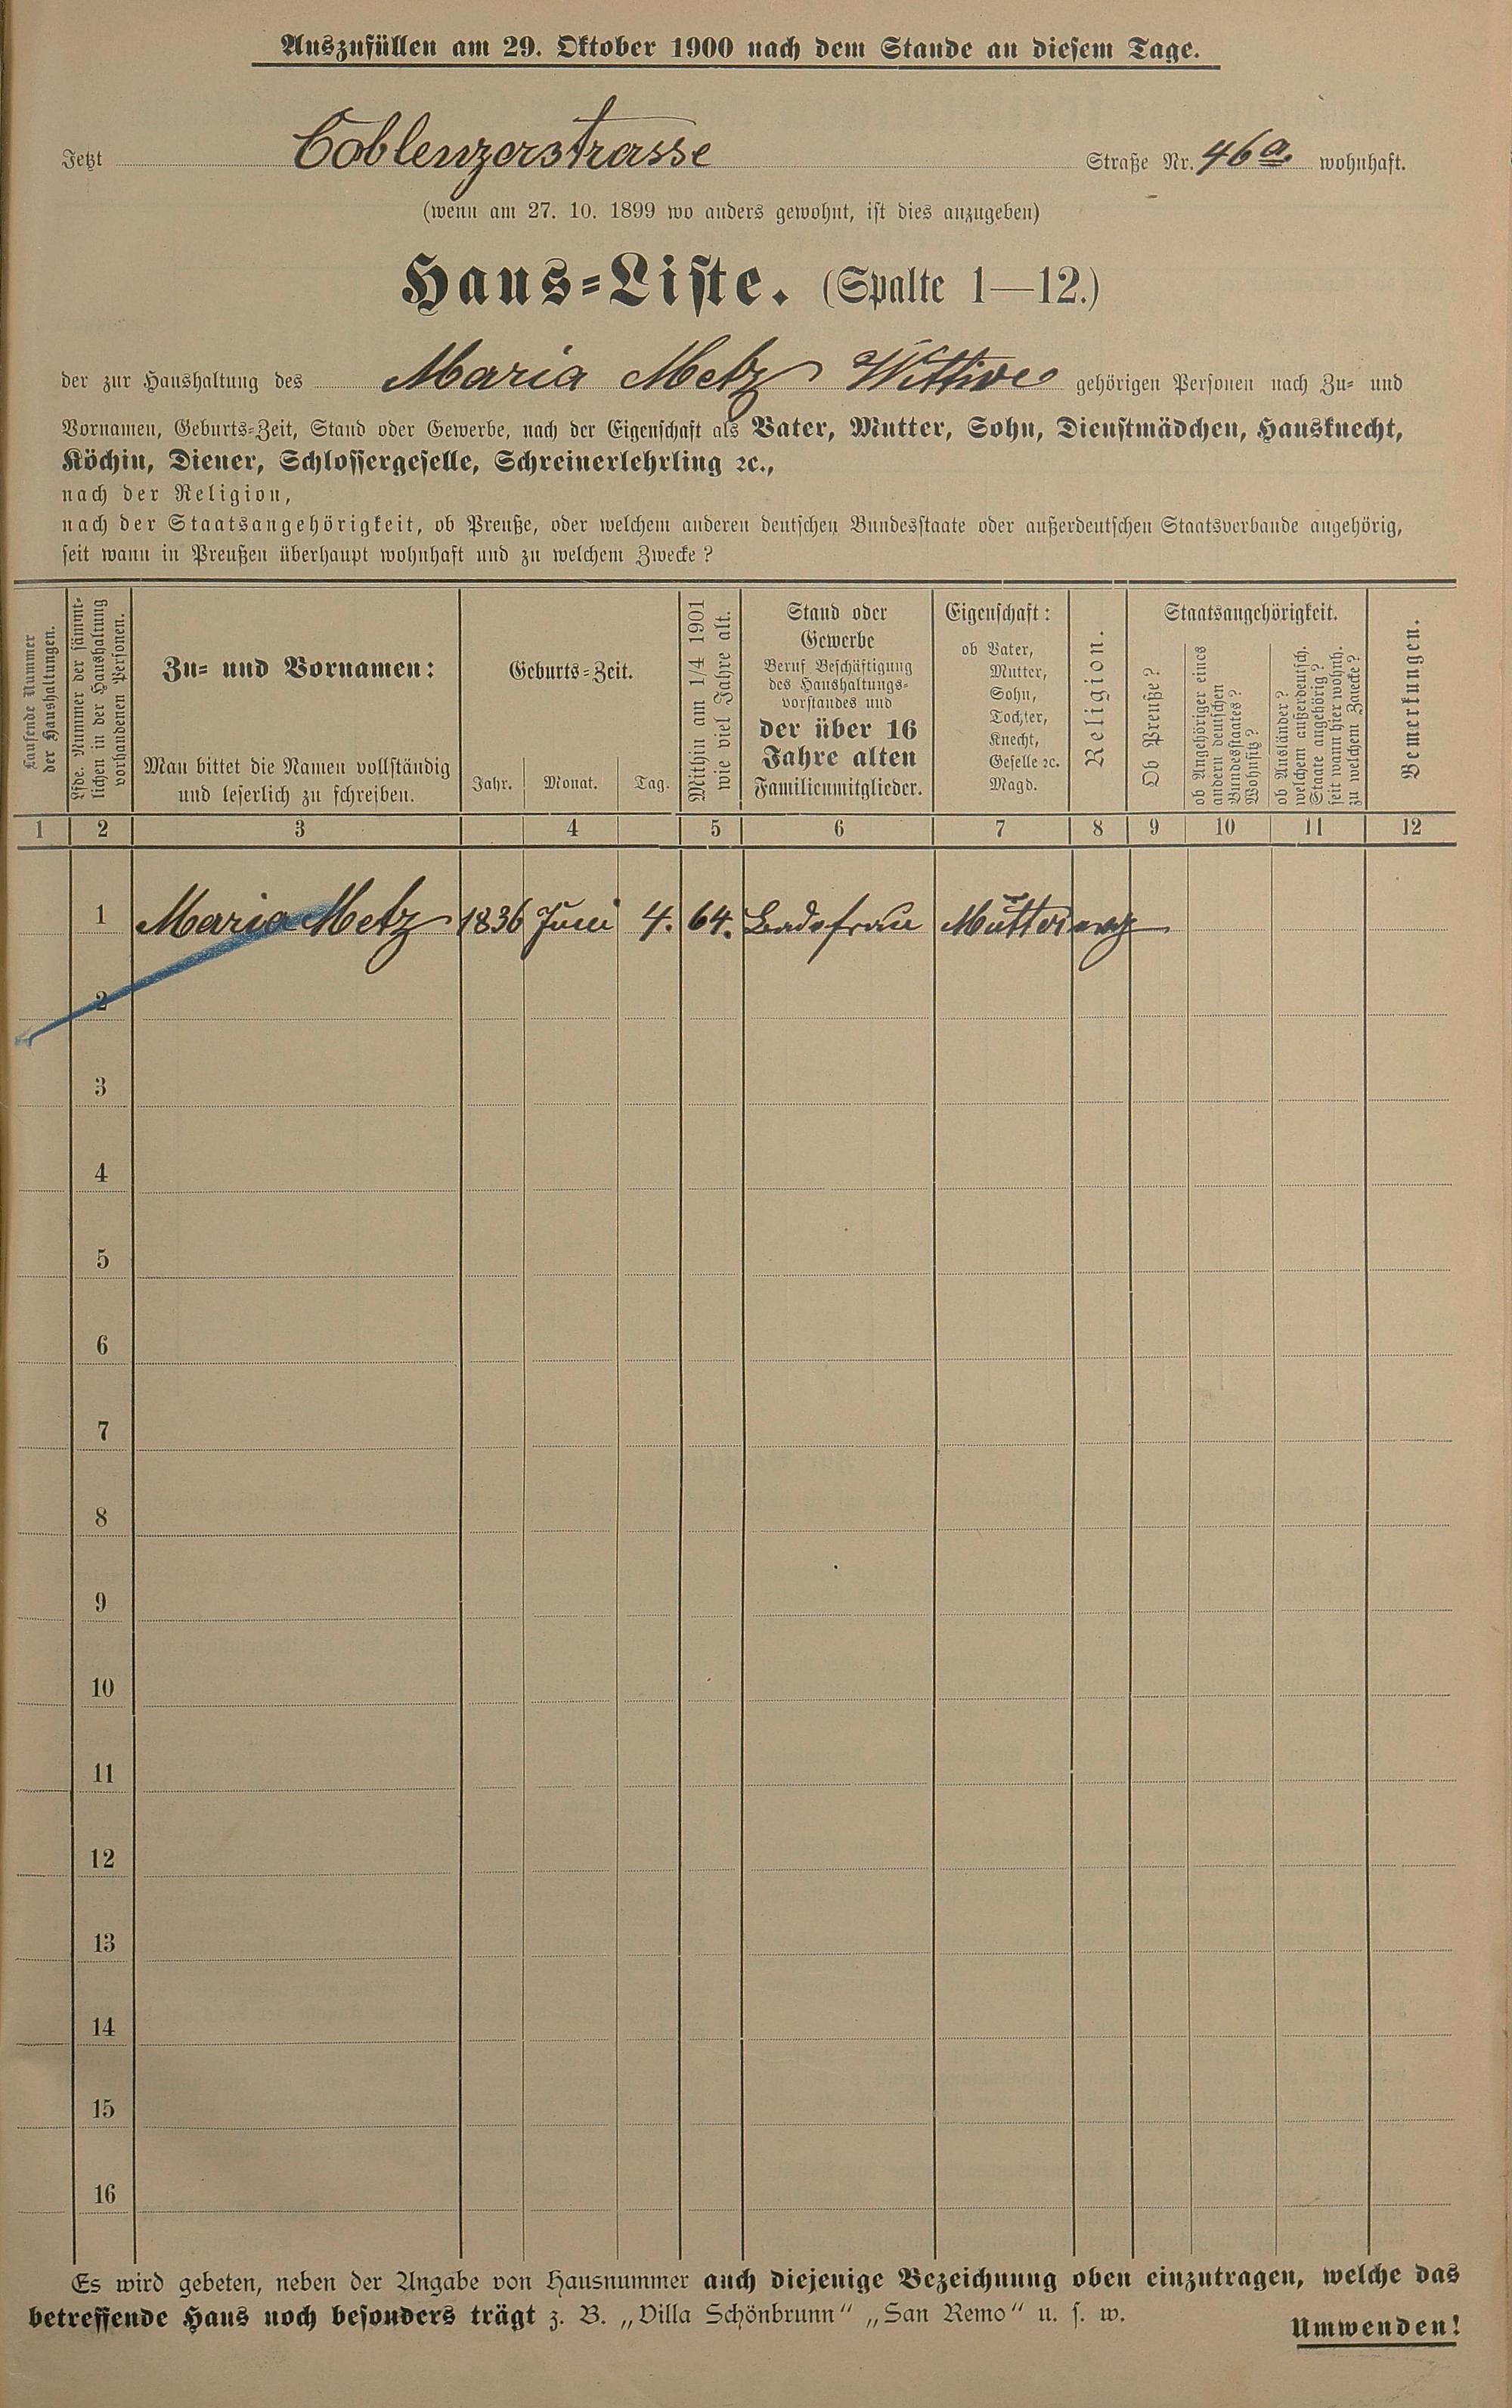 Auszufüllen am 29. Oktober 1900 nach dem Stande an diesem Tage.
Jetzt Coblenzerstrasse Straße Nr. 46a. wohnhaft.
(wenn am 27. 10. 1899 wo anders gewohnt, ist dies anzugeben)
Haus-Liste. (Spalte 1—12.)
der zur Haushaltung des Maria Metz Wittwe gehörigen Personen nach Zu- und
Vornamen, Geburts-Zeit, Stand oder Gewerbe, nach der Eigenschaft als Vater, Mutter, Sohn, Dienstmädchen, Hausknecht,
Köchin, Diener, Schlossergeselle, Schreinerlehrling ꝛc.,
nach der Religion,
nach der Staatsangehörigkeit, ob Preuße, oder welchem anderen deutschen Bundesstaate oder außerdeutschen Staatsverbande angehörig,
seit wann in Preußen überhaupt wohnhaft und zu welchem Zwecke?
Laufende Nummer
der Haushaltungen.
Lfde. Nummer der sämmt-
lichen in der Haushaltung
vorhandenen Personen.
Zu- und Vornamen:
Man bittet die Namen vollständig
und leserlich zu schreiben.
Geburts-Zeit.
Jahr. Monat. Tag.
Mithin am 1/4 1901
wie viel Jahre alt.
Stand oder
Gewerbe
Beruf Beschäftigung
des Haushaltungs-
vorstandes und
der über 16
Jahre alten
Familienmitglieder.
Eigenschaft:
ob Vater,
Mutter,
Sohn,
Tochter,
Knecht,
Geselle ꝛc.
Magd.
Religion.
Staatsangehörigkeit.
Ob Preuße?
ob Angehöriger eines
andern deutschen
Bundesstaates?
Wohnsitz?
ob Ausländer?
welchem außerdeutsch.
Staate angehörig?
seit wann hier wohnh.
zu welchem Zwecke?
Bemerkungen.
1 2 3 4 5 6 7 8 9 10 11 12
1 Maria Metz 1836 Juni 4. 64. Badefrau Mutter evg
2
3
4
5
6
7
8
9
10
11
12
13
14
15
16
Es wird gebeten, neben der Angabe von Hausnummer auch diejenige Bezeichnung oben einzutragen, welche das
betreffende Haus noch besonders trägt z. B. „Villa Schönbrunn“ „San Remo“ u. s. w.
Umwenden!